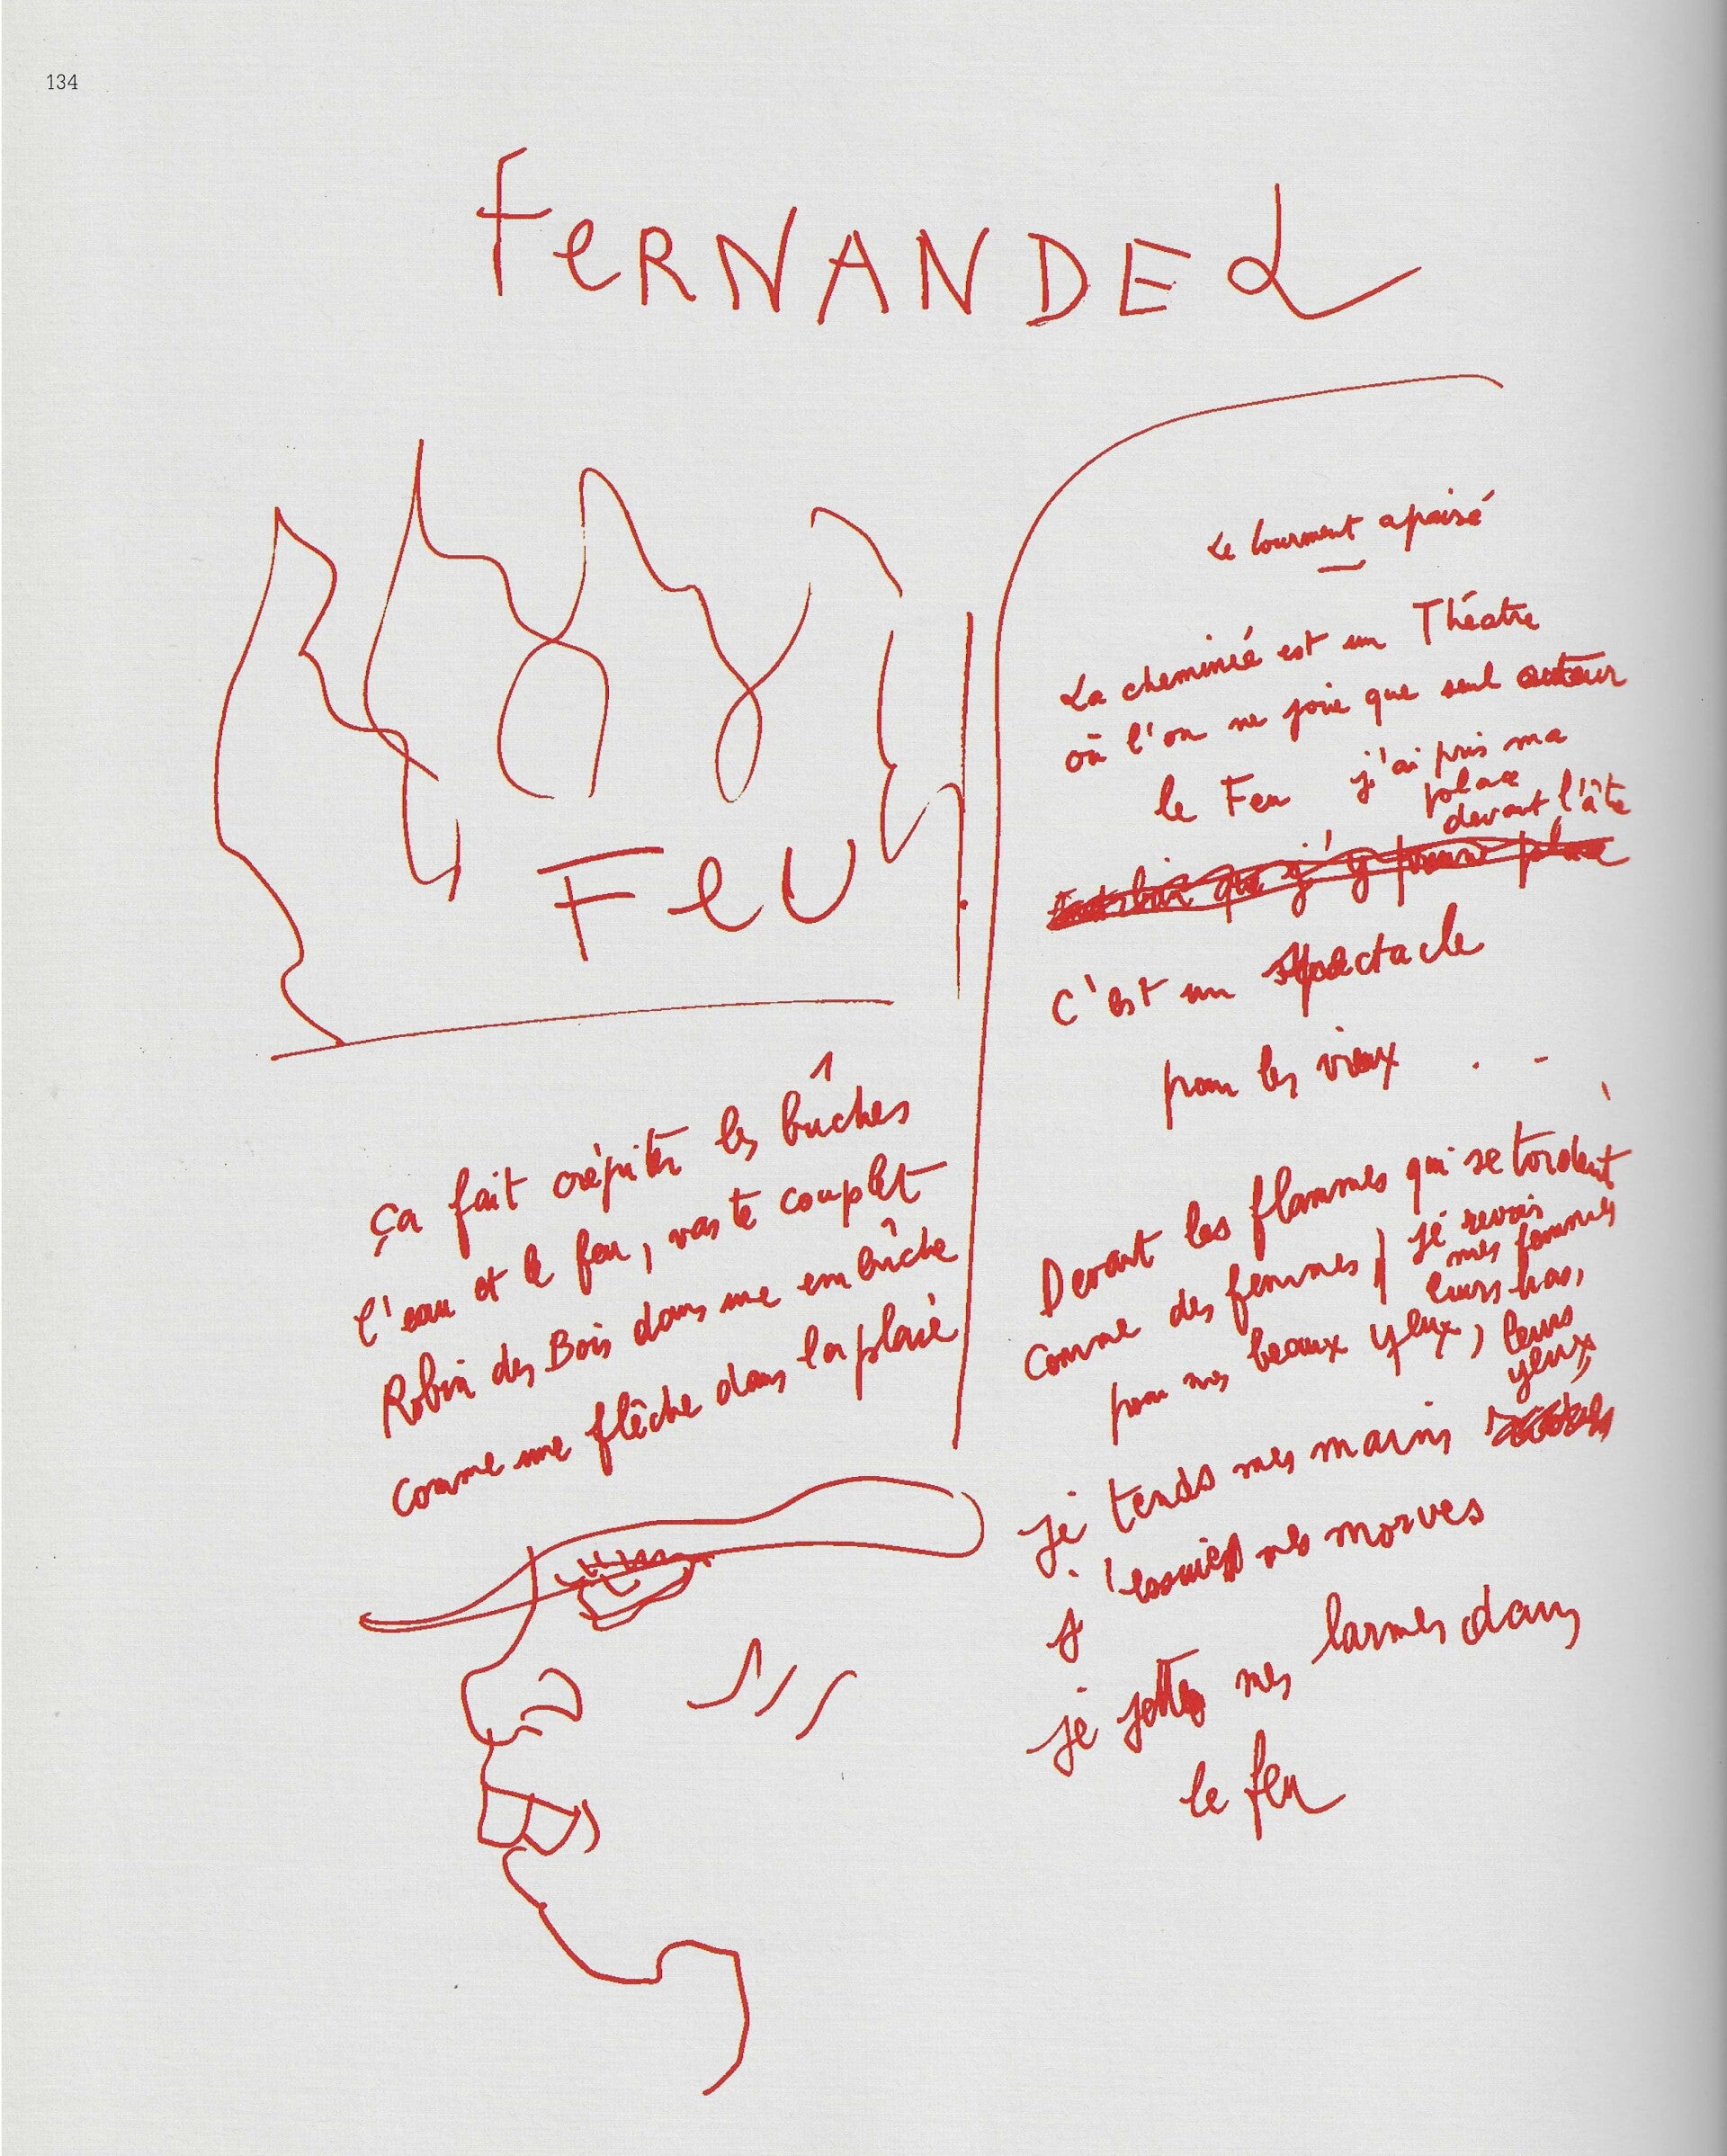 134
FeRNANDEL
FeU
ça fait crépiter les bûches
l'eau et le feu, vaste couplet
Robin des Bois dans une embûche
comme une flêche dans la plaie
Le tourment apaisé
La cheminée est un Théatre
où l'on ne joue que seul auteur
le Feu j'ai pris ma
place
devant l'âtre
j'y prenne place
C'est un Spectacle
pour les vieux
Devant les flammes qui se tordent
comme des femmes je revois
mes femmes
leurs bas,
pour mes beaux yeux, leurs
yeux,
je tends mes mains
j'essuie mes morves
je jette mes larmes dans
le feu